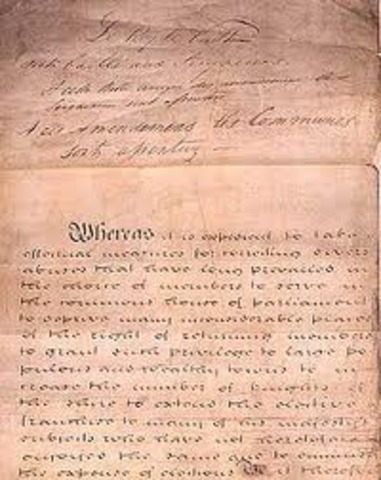 Le Roy le Veult
Soit baillé aux Seigneurs
A ces Amendemens les Communes
sont assentuz
Whereas it is expedient to take
effectual measures for correcting divers
abuses that have long prevailed in
the choice of members to serve in
the commons house of parliament
to deprive many inconsiderable places
of the right of returning members
to grant such privilege to large po
pulous and wealthy towns to in
crease the number of knights of
the shire to extend the elective
franchise to many of his majesty's
subjects who have not heretofore
enjoyed the same and to diminish
the expense of elections Be it therefore